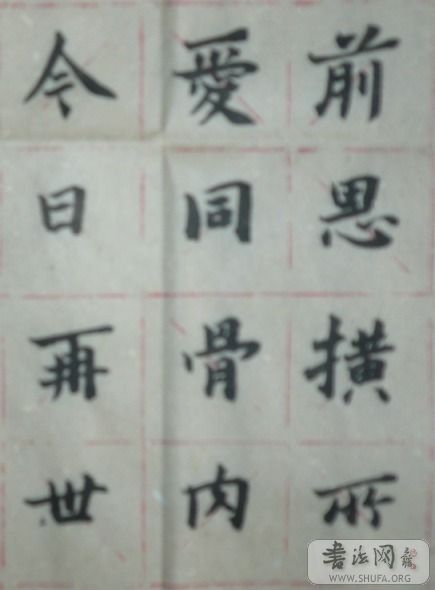 前恩橫所
愛同骨肉
今日再世
書法网
WWW.SHUFA.ORG